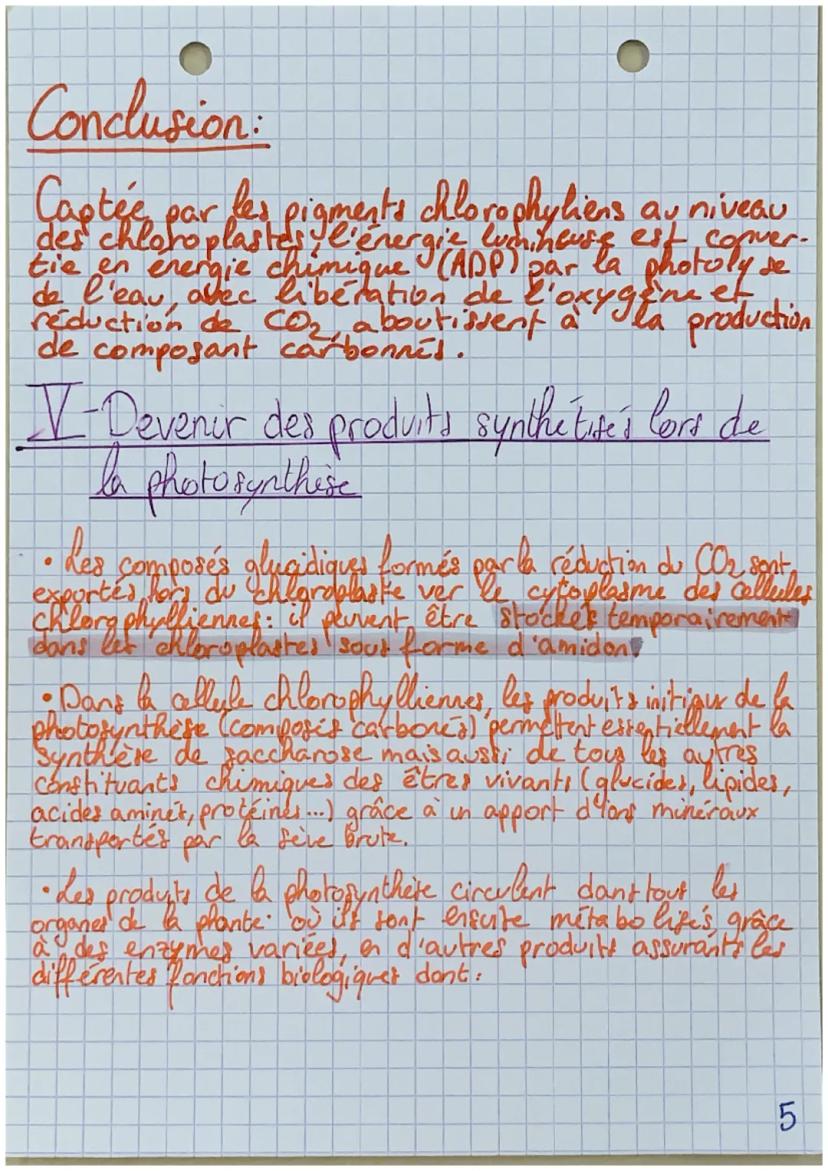 Conclusion:
Captée par les pigments chlorophyliens au niveau
des chloroplastes, l'énergie lumineuse est conver-
tie en énergie chimique (ADP) par la photolyse
de l'eau, avec libération de l'oxygène et
réduction de CO2, aboutissent à la production
de composant carbonnés.
V-Devenir des produits synthétisés lors de
la photosynthèse
• Les composés glucidiques formés par la réduction du CO2 sont
exportés hors du chloroplaste ver le cytoplasme des cellules
chlorophylliennes: il peuvent être stockés temporairement
dans les chloroplastes sous forme d'amidon,
• Dans la cellule chlorophylliennes, les produits initiaux de la
photosynthèse (composés carbonés) permettent essentiellement la
synthèse de saccharose mais aussi de tous les autres
constituants chimiques des êtres vivants (glucides, lipides,
acides aminés, protéines...) grâce à un apport d'ions minéraux
transportés par la sève brute.
• Les produits de la photosynthèse circulent dans tout les
organes de la plante où ils sont ensuite métabolisés, grâce
à des enzymes variées, en d'autres produits assurants les
différentes fonctions biologiques dont:
5